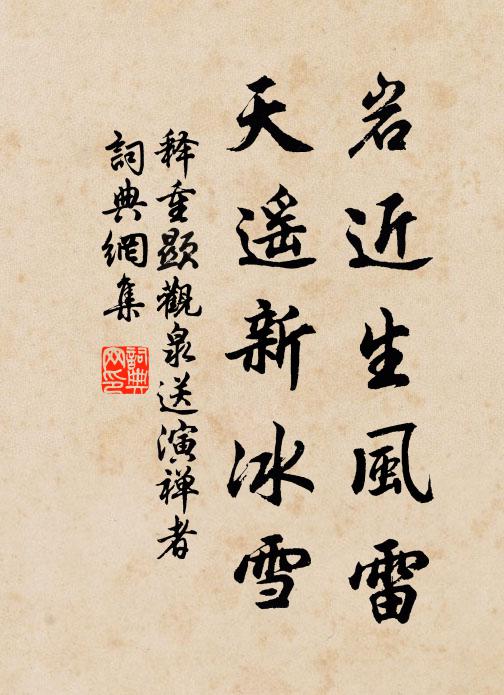 岩近生風雷
天遥新冰雪
释重顯觀泉送演禅者
詞典網集
詞典网印